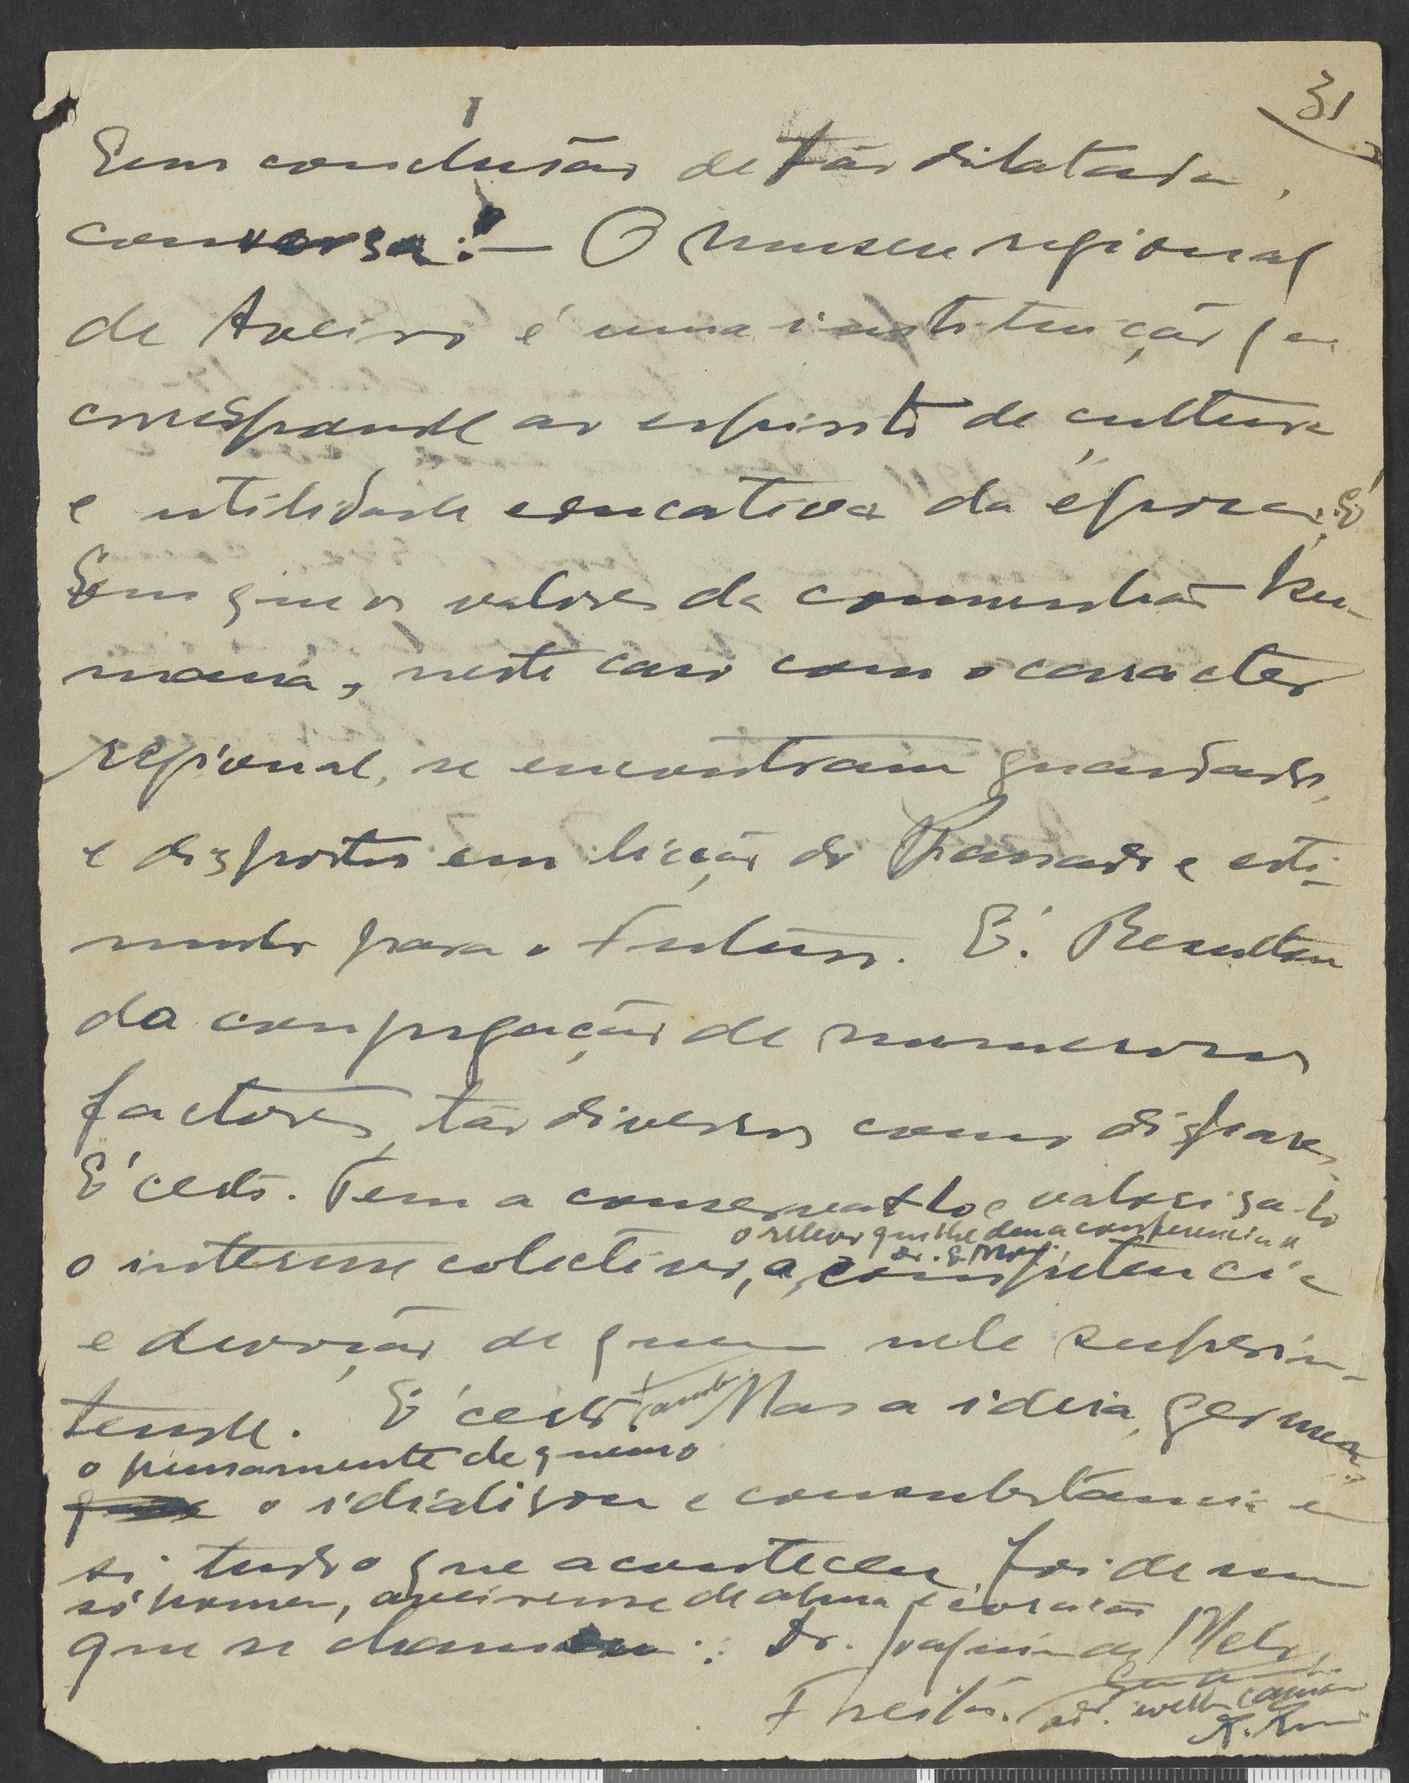 31
Em conclusão de tão dilatada
conversa: — O museu regional
de Aveiro é uma instituição que
corresponde ao espirito de cultura
e utilidade educativa da época. É
Em que os valores da comunhão hu-
mana, neste caso com o caracter
regional, se encontram guardados,
e dispostos em licção do Passado e esti-
mulo para o Futuro. É. Resultou
da conjugação de numerosos
factores, tão diversos como dispares,
É certo. Tem a conserval-lo e valorisa-lo
o relevo que lhe deu a conferencia
o interesse colectivo, a competencia
e devoção de quem nele superin-
tende. É certo. Mas a ideia, germen
o pensamento de quem o
o idialisou e consubstancia em
si tudo o que aconteceu, foi de um
só homem, aveirense de alma e coração
que se chamou: Dr. Joaquim de Melo
Freitas.